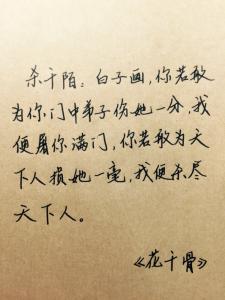 杀千陌：白子画，你若敢
为你门中弟子伤她一分，我
便屠你满门，你若敢为天
下人损她一毫，我便杀尽
天下人。
《花千骨》